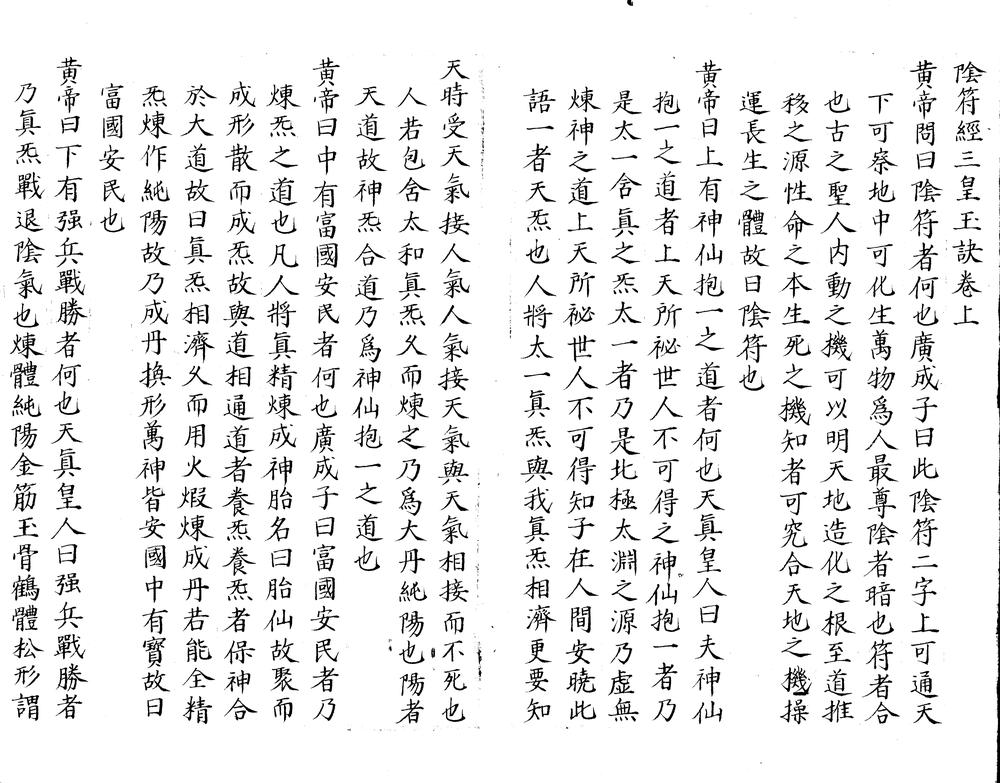 陰符經三皇玉訣卷上
黃帝問曰陰符者何也廣成子曰此陰符二字上可通天
下可察地中可化生萬物爲人最尊陰者暗也符者合
也古之聖人内動之機可以明天地造化之根至道推
移之源性命之本生死之機知者可究合天地之機操
運長生之體故曰陰符也
黃帝曰上有神仙抱一之道者何也天眞皇人曰夫神仙
抱一之道者上天所祕世人不可得之神仙抱一者乃
是太一含眞之炁太一者乃是北極太淵之源乃虛無
煉神之道上天所祕世人不可得知子在人間安曉此
語一者天炁也人將太一眞炁與我眞炁相濟更要知
天時受天氣接人氣人氣接天氣與天氣相接而不死也
人若包含太和眞炁久而煉之乃爲大丹純陽也陽者
天道故神炁合道乃爲神仙抱一之道也
黃帝曰中有富國安民者何也廣成子曰富國安民者乃
煉炁之道也凡人將眞精煉成神胎名曰胎仙故聚而
成形散而成炁故與道相通道者養炁養炁者保神合
於大道故曰眞炁相濟久而用火煆煉成丹若能全精
炁煉作純陽故乃成丹換形萬神皆安國中有寳故曰
富國安民也
黃帝曰下有强兵戰勝者何也天眞皇人曰强兵戰勝者
乃眞炁戰退陰氣也煉體純陽金筋玉骨鶴體松形謂